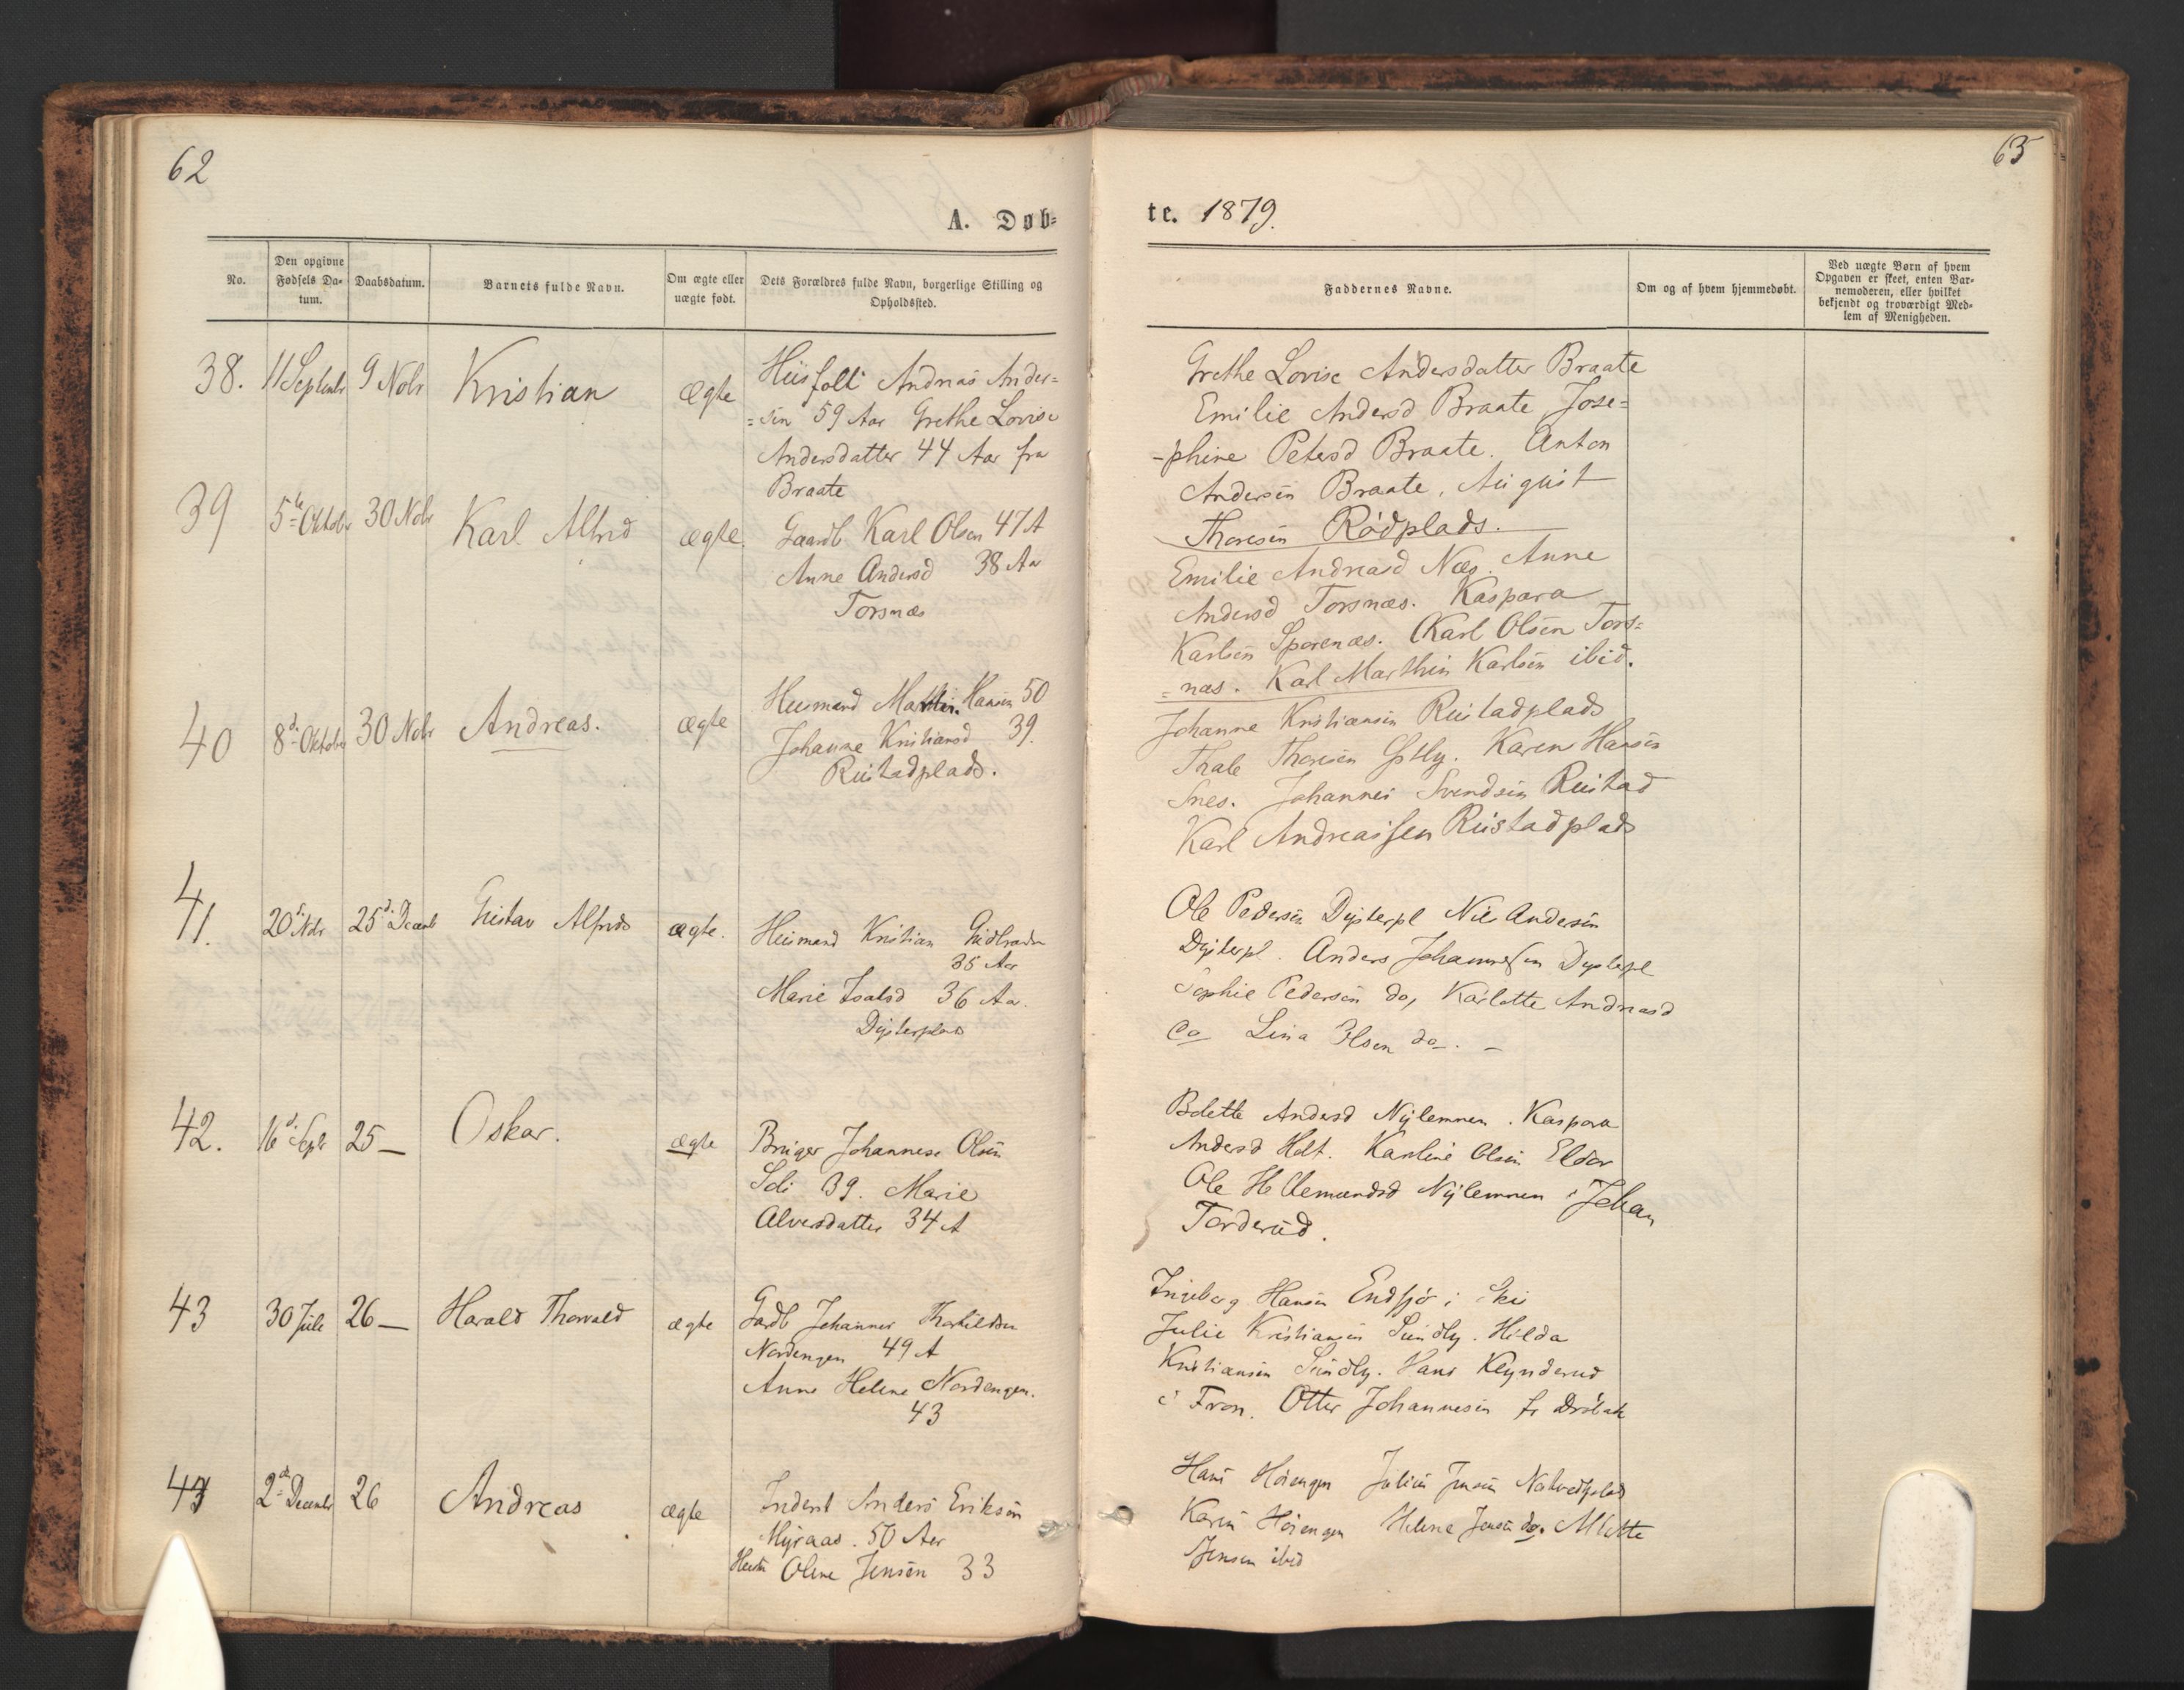 62
A. Døb=
No.
Den opgivne Fødsels Da-
tum.
Daabsdatum.
Barnets fulde Navn.
Om ægte eller
uægte født.
Dets Forældres fulde Navn, borgerlige Stilling og
Opholdssted.
38. 11 Septembr 9 Nobr Kristian ægte
Husfolk Andreas Ander=
=sen 59 Aar Grethe Lovise
Andersdatter 44 Aar fra
Braate
39 5te Oktobr 30 Nobr Karl Alfred ægte
Gaardb Karl Olsen 47 A
Anne Andersd 38 Aa
Torsnæs
40 8de Oktober 30 Nobr Andreas. ægte
Husmand Martin Hansen 50
Johanne Kristiansd 39.
Rustadplads.
41. 20de Nobr 25de Decemb Gustav Alfred ægte.
Husmand Kristian
36 Aar
Marie 36 Aa.
Dysterplads
42. 16de Sepbr 25 — Oskar. ægte
Bruger Johannes Olsen
39. Marie
Alversdatter 34 A
43 30 Juli 26 — Harald Thorvald ægte
Gardb Johannes
Nordengen 49 A
Anne Helene Nordengen.
43
44 2de Decembr 26 Andreas ægte
Inderst Anders Eriksen
Myraas. 50 Aar
Hustru Oline Jensen 33
63
te. 1879.
Faddernes Navne.
Om og af hvem hjemmedøbt.
Ved uægte Børn af hvem
Opgaven er skeet, enten Bar-
nemoderen, eller hvilket
bekjendt og troværdigt Med-
lem af Menigheden.
Grethe Lovise Andersdatter Braate
Emilie Andersd Braate Jose=
-phine Petersd Braate. Anton
Andersen Braate, August
Thoresen Rødplads.
Emilie Andreasd Næs. Anne
Andersd Torsnæs. Kaspara
Karlsen Sporenæs. Karl Olsen Tors=
=næs. Karl Marthin Karlsen ibid.
Johanne Kristiansen Rustadplads
Thale Thoresen Østby. Karen Hansen
Snes. Johannes Svendsen Rustad
Karl Andreassen Rustadplads
Ole Pedersen Dysterpl Nils Andersen
Dysterpl. Anders Johannessen Dysterpl
Sophie Pedersen do, Karlotte Andreasd
do Lina Olsen do. —
Bolette Andersd Nylemnen. Kaspara
Andersd Holt. Karoline Olsen Eldor
Ole Nylemnen, Johan
Torderud.
Ingeborg Hansen Endsjø i Ski
Julie Kristiansen Sundby. Hilda
Kristiansen Sundby. Hans
i Fron. Otter Johannesen fr Drøbak
Hans Høiengen Julius Jensen
Karen Høiengen Helene Jensen do. Mlette
Jensen ibid